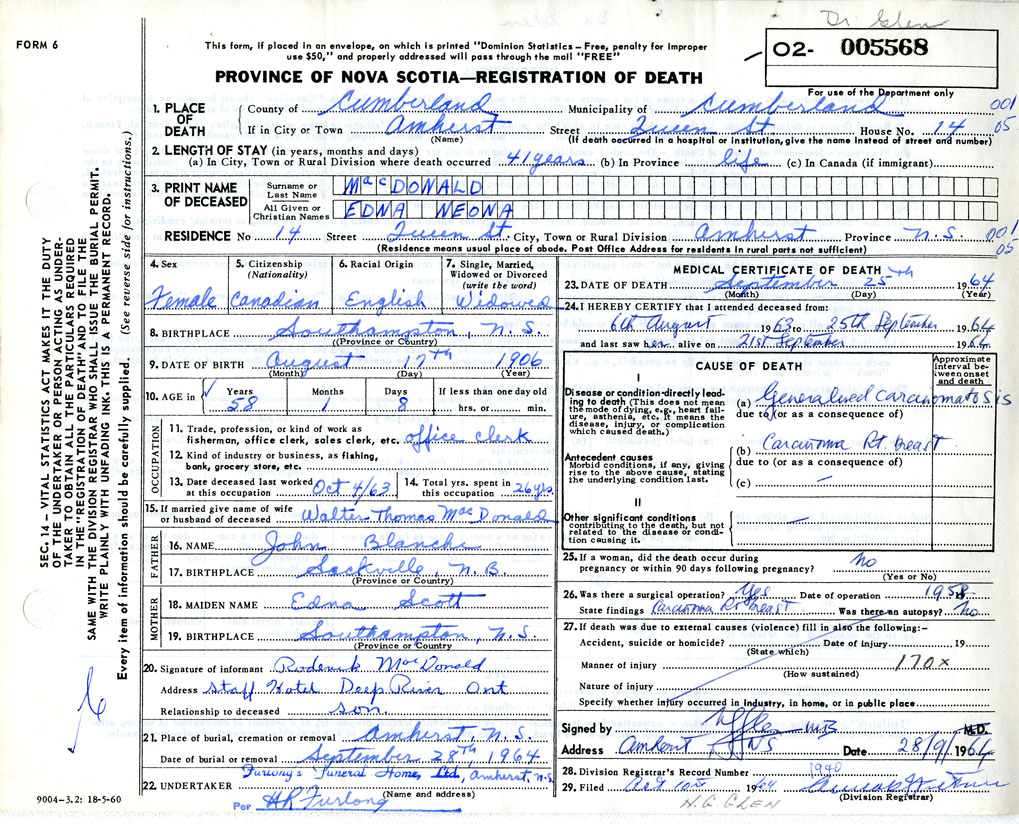 Dr Glen
FORM 6
This form, if placed in an envelope, on which is printed "Dominion Statistics – Free, penalty for improper
use $50," and properly addressed will pass through the mail "FREE"
O2- 005568
For use of the Department only
PROVINCE OF NOVA SCOTIA—REGISTRATION OF DEATH
1. PLACE OF DEATH
County of Cumberland Municipality of Cumberland 001
If in City or Town Amherst Street Queen St House No. 14 05
(Name) (If death occurred in a hospital or institution, give the name instead of street and number)
2. LENGTH OF STAY (in years, months and days)
(a) In City, Town or Rural Division where death occurred 41 years (b) In Province life (c) In Canada (if immigrant)
3. PRINT NAME OF DECEASED
Surname or Last Name MacDONALD
All Given or Christian Names EDNA NEONA
RESIDENCE No 14 Street Queen St. City, Town or Rural Division Amherst Province N.S. 001
05
(Residence means usual place of abode. Post Office Address for residents in rural parts not sufficient)
SEC. 14 – VITAL STATISTICS ACT MAKES IT THE DUTY
OF THE UNDERTAKER OR PERSON ACTING AS UNDER-
TAKER TO OBTAIN ALL THE PARTICULARS REQUIRED
IN THE "REGISTRATION OF DEATH" AND TO FILE THE
SAME WITH THE DIVISION REGISTRAR WHO SHALL ISSUE THE BURIAL PERMIT.
WRITE PLAINLY WITH UNFADING INK. THIS IS A PERMANENT RECORD.
Every item of information should be carefully supplied. (See reverse side for instructions.)
4. Sex
Female
5. Citizenship
(Nationality)
Canadian
6. Racial Origin
English
7. Single, Married,
Widowed or Divorced
(write the word)
Widowed
8. BIRTHPLACE Southampton, N.S.
(Province or Country)
9. DATE OF BIRTH August 17th 1906
(Month) (Day) (Year)
10. AGE in Years Months Days If less than one day
58 1 8 hrs. or min.
OCCUPATION
11. Trade, profession, or kind of work as
fisherman, office clerk, sales clerk, etc. office clerk
12. Kind of industry or business, as fishing,
bank, grocery store, etc.
13. Date deceased last worked
at this occupation Oct 4/63
14. Total yrs. spent in
this occupation 26 yrs.
15. If married give name of wife
or husband of deceased Walter Thomas MacDonald
FATHER
16. NAME John Blanch
17. BIRTHPLACE Sackville, N.B.
(Province or Country)
MOTHER
18. MAIDEN NAME Edna Scott
19. BIRTHPLACE Southampton, N.S.
(Province or Country)
20. Signature of informant Roderick MacDonald
Address Staff Hotel Deep River Ont
Relationship to deceased son.
21. Place of burial, cremation or removal Amherst, N.S.
Date of burial or removal September 28th, 1964
Furlong's Funeral Home, Ltd., Amherst, N.S.
22. UNDERTAKER
(Name and address)
Per H R Furlong
9004-3.2: 18-5-60
MEDICAL CERTIFICATE OF DEATH
23. DATE OF DEATH September 25th 1964
(Month) (Day) (Year)
24. I HEREBY CERTIFY that I attended deceased from:
6th August 1963 to 25th September 1964
and last saw her alive on 21st September 1964
CAUSE OF DEATH
Approximate interval between onset and death
I
Disease or condition directly lead-
ing to death (This does not mean
the mode of dying, e.g., heart fail-
ure, asthenia, etc. It means the
disease, injury, or complication
which caused death.)
(a) Generalised Carcinomatosis
due to (or as a consequence of)
Antecedent causes
Morbid conditions, if any, giving
rise to the above cause, stating
the underlying condition last.
(b) Carcinoma Rt. breast
due to (or as a consequence of)
(c) —
II
Other significant conditions
contributing to the death, but not
related to the disease or condi-
tion causing it.
—
25. If a woman, did the death occur during
pregnancy or within 90 days following pregnancy? No
(Yes or No)
26. Was there a surgical operation? Yes Date of operation 1958
State findings Carcinoma Rt breast Was there an autopsy? No.
27. If death was due to external causes (violence) fill in also the following:–
Accident, suicide or homicide? Date of injury 19
(State which)
Manner of injury 170x
(How sustained)
Nature of injury
Specify whether injury occurred in industry, in home, or in public place
Signed by MB M.D.
Address Amherst NS Date 28/9/1964
28. Division Registrar's Record Number 1940
29. Filed Oct 10th 1964
(Division Registrar)
H.G. GLEN